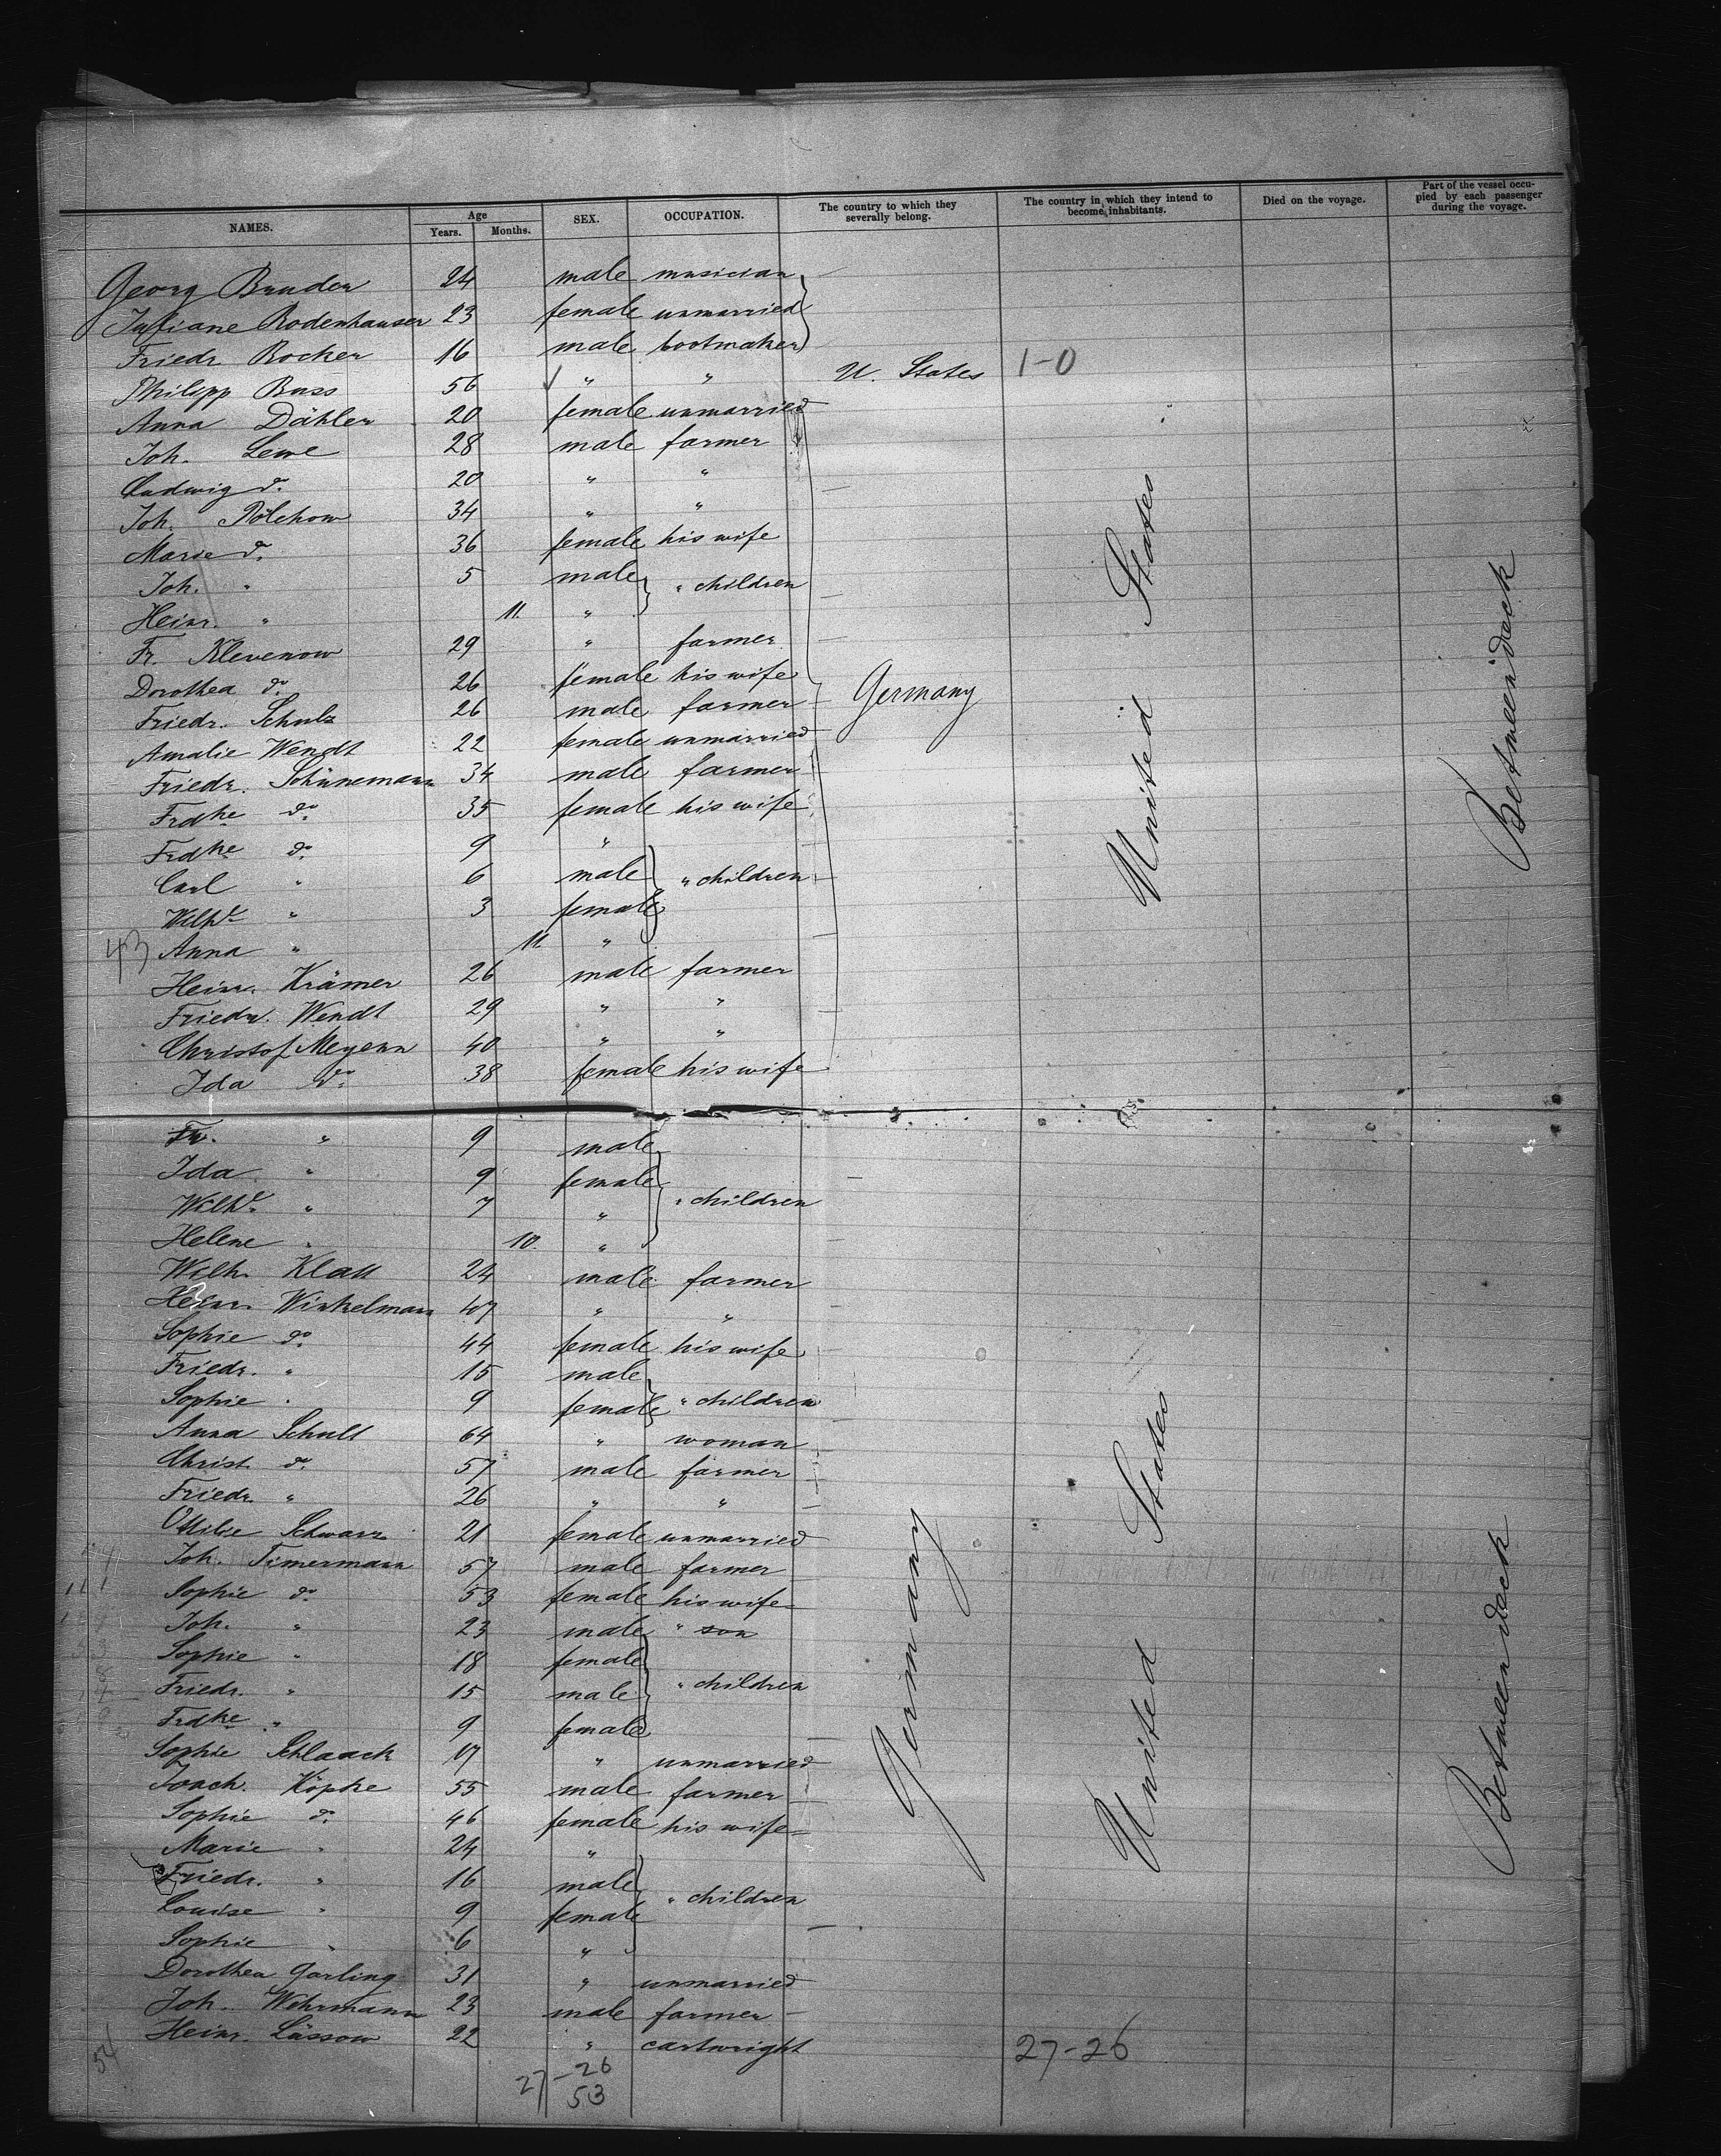 NAMES. Age Years. Months. SEX. OCCUPATION. The country to which they severally belong. The country in which they intend to become inhabitants. Died on the voyage. Part of the vessel occupied by each passenger during the voyage.
Georg Bruder 24 male musician
Juliane Rodenhauser 23 female unmarried
Friedr. Rocker 16 male bootmaker
Philipp Buss 56 " " U. States 1-0
Anna Dähler 20 female unmarried
Joh. Lewe 28 male farmer
Ludwig do. 20 " "
Joh. Pölchow 34 " "
Marie do. 36 female his wife
Joh. " 5 male " children
Heinr. " 11. "
Fr. Klevenow 29 " farmer
Dorothea do. 26 female his wife
Friedr. Schulz 26 male farmer
Germany
Amalie Wendt 22 female unmarried
Friedr. Schünemann 34 male farmer
Frdke do. 35 female his wife
Frdke do. 9 "
Carl " 6 male " children
Wilhe " 3 female
43 Anna " 11. "
Heinr. Krämer 26 male farmer
Friedr. Wendt 29 " "
Christof Meyenn 40 " "
Ida do. 38 female his wife
United States
Between deck
Fr. " 9 male
Ida " 9 female
Wilhe " 7 " " children
Helene " 10. "
Wilh. Klatt 24 male farmer
Heinr. Winkelmann 47 " "
Sophie do. 44 female his wife
Friedr. " 15 male
Sophie " 9 female " children
Anna Schult 64 " woman
Christ. do. 57 male farmer
Friedr. " 26 " "
Ottilie Schwarz 21 female unmarried
Joh. Timermann 57 male farmer
Sophie do. 53 female his wife
Joh. " 23 male " son
Sophie " 18 female
Friedr. " 15 male " children
Frdke " 9 female
Sophie Schlaack 17 " unmarried
Joach. Köpke 55 male farmer
Sophie do. 46 female his wife
Marie " 24 "
Friedr. " 16 male
Louise " 9 female " children
Sophie " 6 "
Dorothea Garling 31 " unmarried
Joh. Wehrmann 23 male farmer
Heinr. Lässow 22 " cartwright
Germany
United States
Between deck
54
27-26
53
27-26